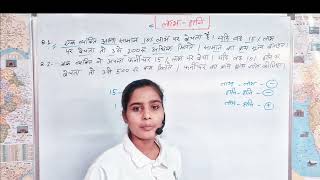 लाभ - हानि
Q.1. एक व्यक्ति अपना सामान 10% लाभ पर बेचता है। यदि वह 15% लाभ
पर बेचता तो उसे 200रु अधिक मिलते। सामान का क्रय मूल्य
Q.2. एक व्यक्ति ने अपना फर्नीचर 15% लाभ पर बेचा। यदि वह 10% हानि पर
बेचता तो उसे 500रु कम मिलते। फर्नीचर का क्रय मूल्य
15 -
लाभ - लाभ - ⊖
हानि - हानि - ⊖
लाभ - हानि - ⊕